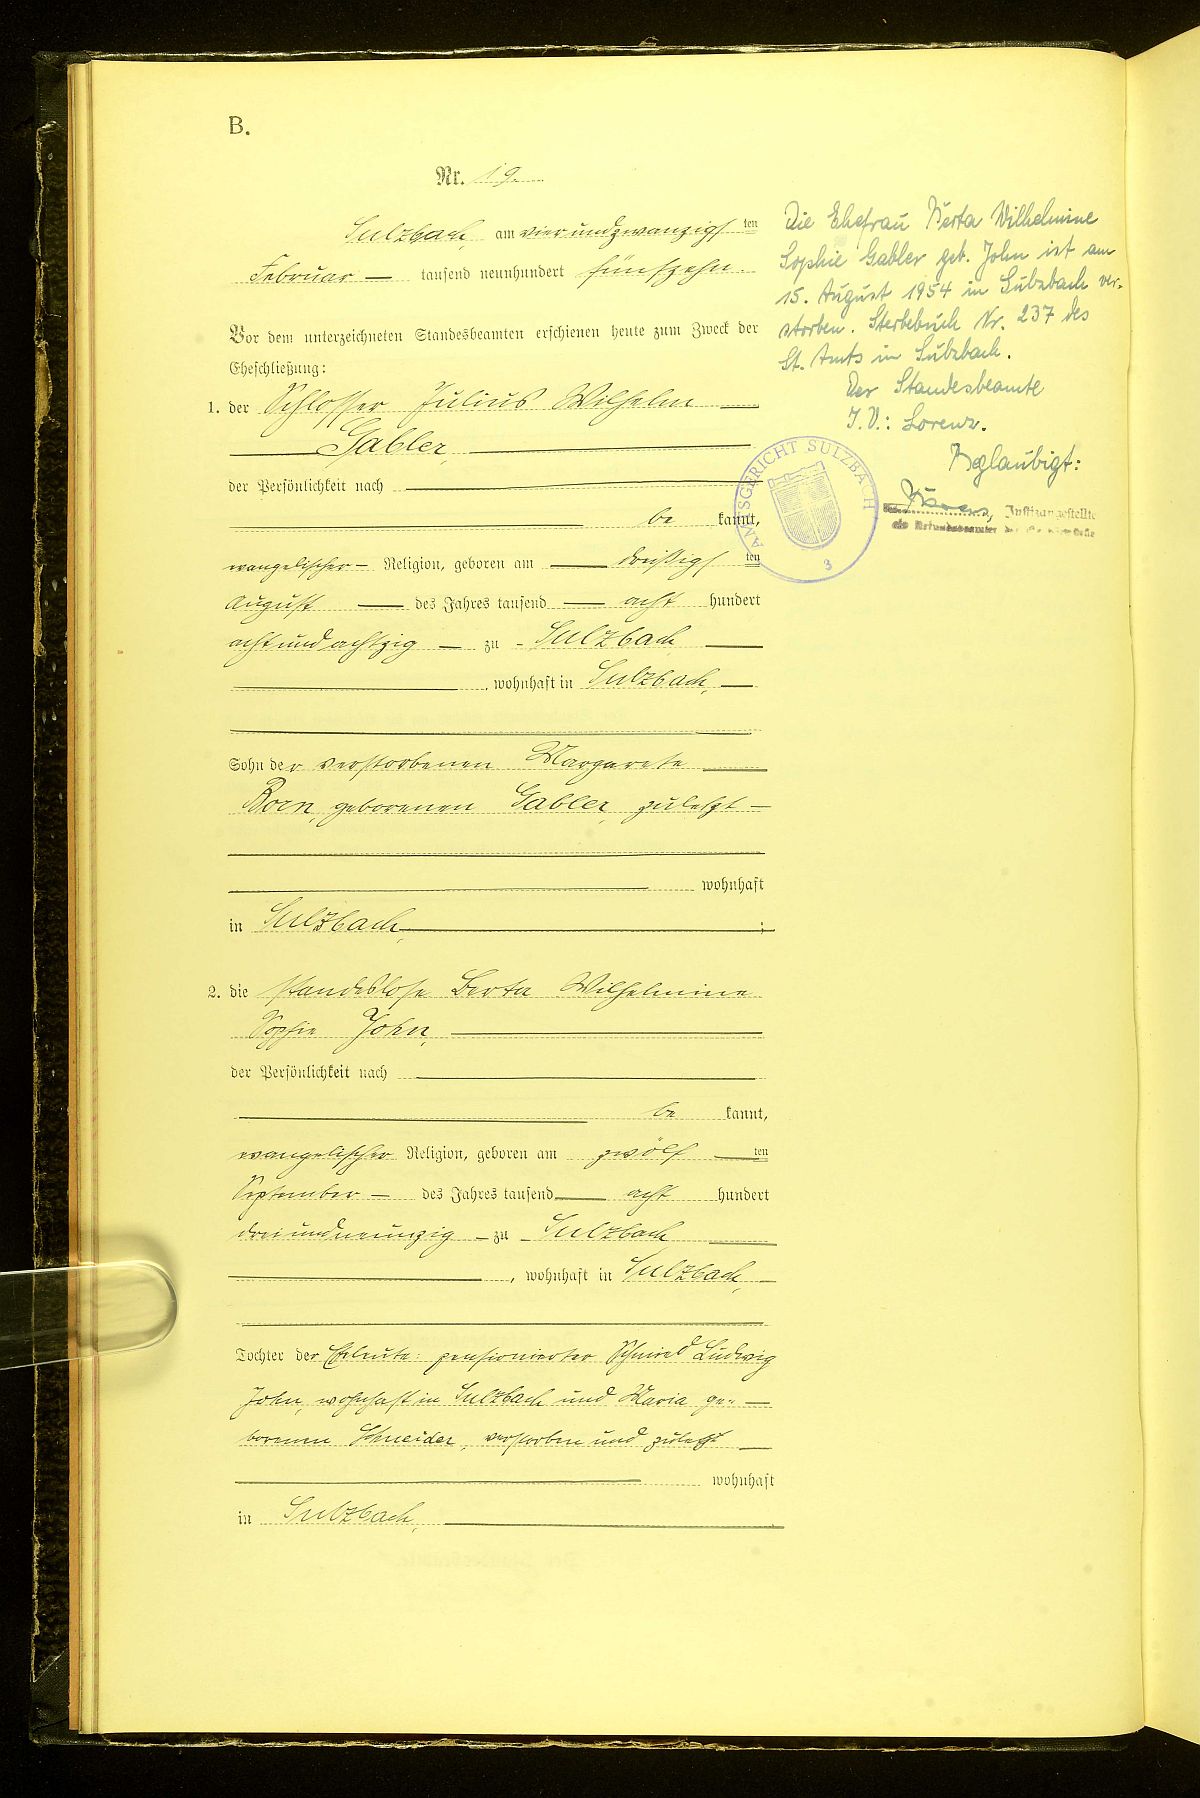 B.
Nr. 19.
Sulzbach am vierundzwanzigsten
Februar tausend neunhundert fünfzehn.
Vor dem unterzeichneten Standesbeamten erschienen heute zum Zweck der
Eheschließung:
1. der Schlosser Julius Wilhelm
Gabler,
der Persönlichkeit nach
be kannt,
evangelischer Religion, geboren am dreißigsten
August des Jahres tausend acht hundert
achtundachtzig zu Sulzbach
, wohnhaft in Sulzbach,
Sohn der verstorbenen Margarete
Born, geborenen Gabler, zuletzt
wohnhaft
in Sulzbach, ;
2. die standeslose Berta Wilhelmine
Sophie John,
der Persönlichkeit nach
be kannt,
evangelischer Religion, geboren am zwölften
September des Jahres tausend acht hundert
dreiundneunzig zu Sulzbach
, wohnhaft in Sulzbach,
Tochter der Eheleute: pensionierter Schmied Ludwig
John, wohnhaft in Sulzbach und Maria ge-
borenen Schneider, verstorben und zuletzt
wohnhaft
in Sulzbach,
Die Ehefrau Berta Wilhelmine
Sophie Gabler geb. John ist am
15. August 1954 in Sulzbach ver-
storben. Sterbebuch Nr. 237 des
St. Amts in Sulzbach.
Der Standesbeamte
I.V.: Lorenz.
Beglaubigt:
Justizangestellte
als Urkundsbeamter der
AMTSGERICHT SULZBACH
3